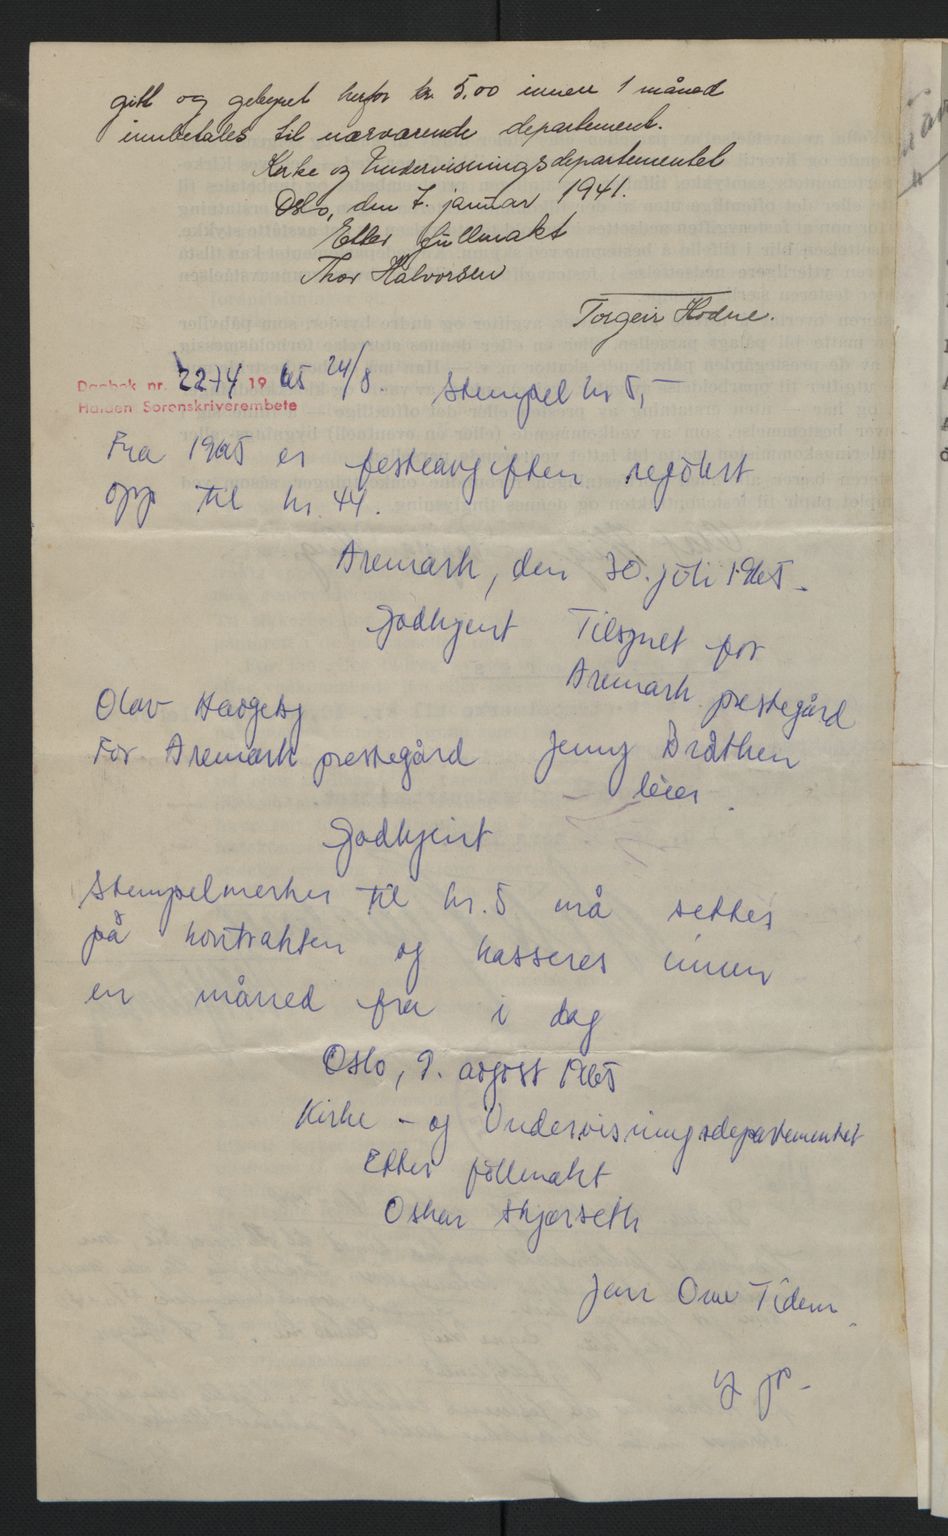 gitt og gebyret herfor kr. 5,00 innen 1 måned
innbetales til nærværende departement.
Kirke og Undervisningsdepartementet
Oslo, den 7. januar 1941.
Etter fullmakt
Thor Halvorsen
Torgeir Hodne.
Dagbok nr. 2274 19 65 24/8. Stempel kr 5,-
Halden Sorenskriverembete
Fra 1965 er festeavgiften regulert
opp til kr. 44.
Aremark, den 30. juli 1965.
Godkjent Tilsynet for
Aremark prestegård
Olav
For Aremark prestegård Jenny Bråthen
leier.
Godkjent
Stempelmerker til kr. 5 må settes
på kontrakten og kasseres innen
en måned fra i dag
Oslo, 9. august 1965
Kirke - og Undervisningsdepartementet
Etter fullmakt
Oskar Skjørseth
Jan Ove Tidem